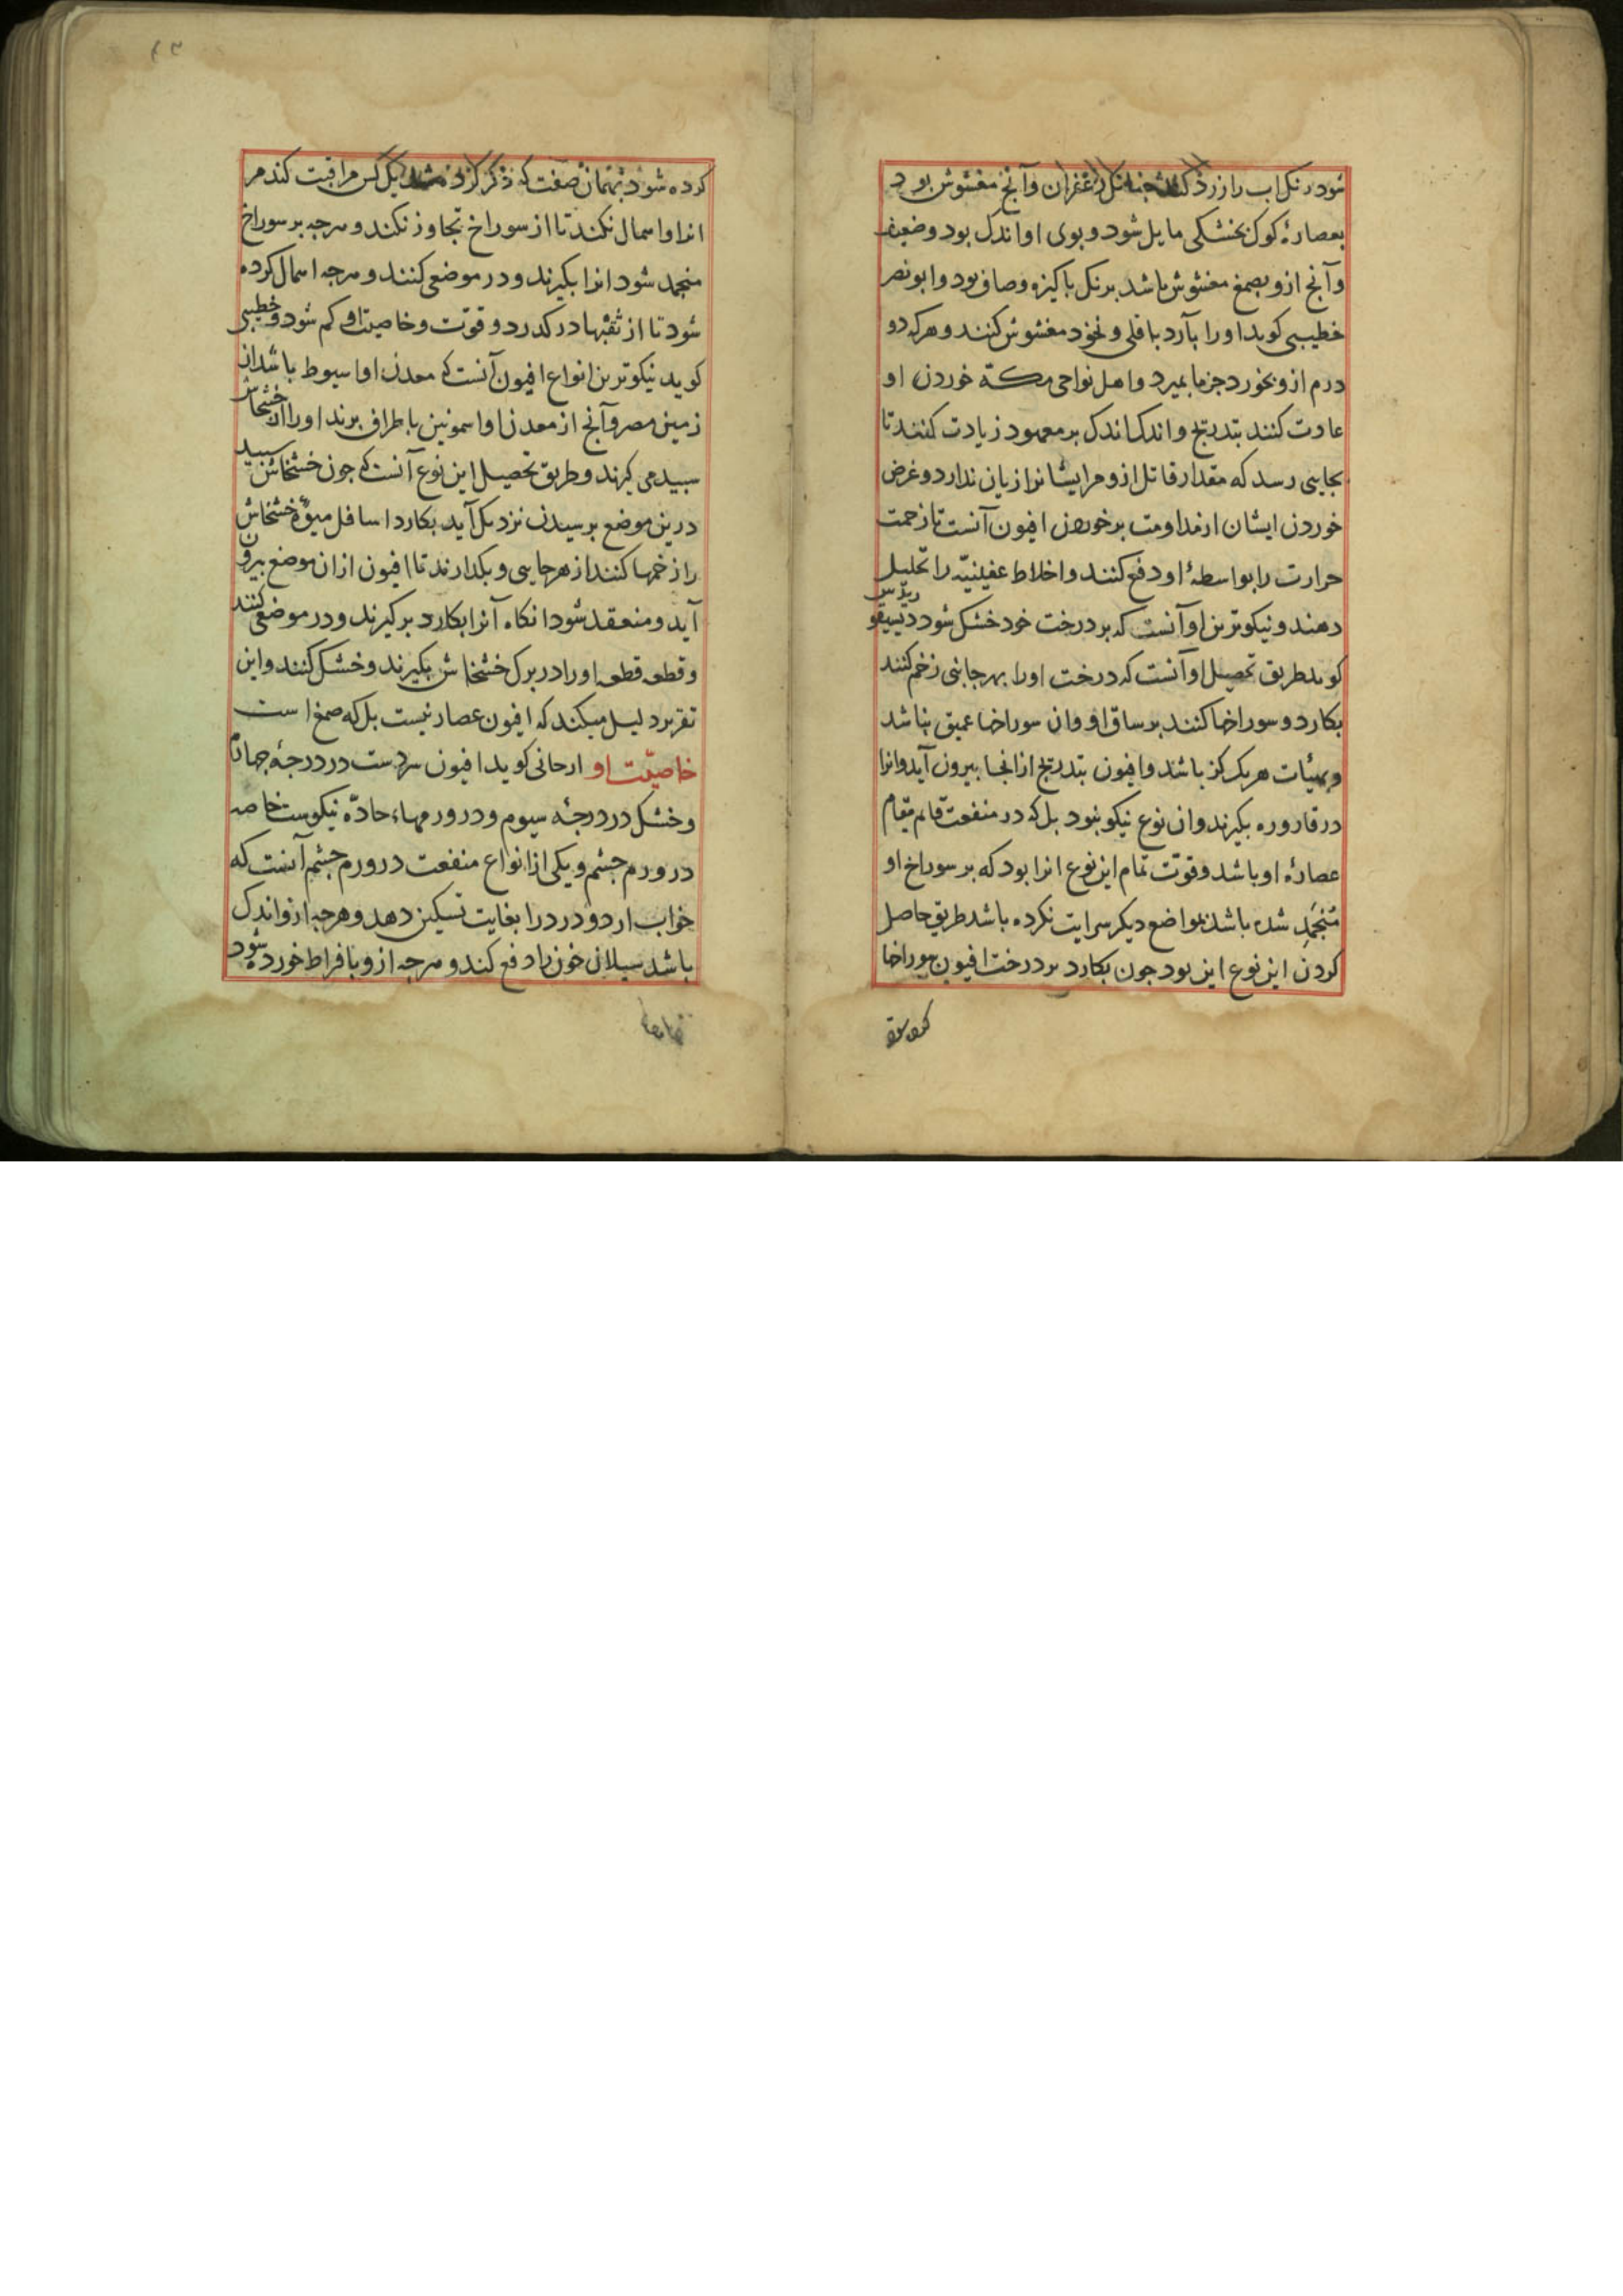 شود رنک اب را زرد کند جنانک زعفران وآنج مغشوش بود
بعصارۀ کوک بخشکی مایل شود و بوی او اندک بود وضعیف
وآنج ازو بصمغ مغشوش باشد برنک باکیزه وصافی بود وابونصر
خطیبی کوید اورا بآرد باقلی ونخود مغشوش کنند وهرکه دو
درم ازو بخورد جزما بمیرد واهل نواحی مکّه خوردن او
عاوت کنند بتدریج واندک اندک بر معهود زیادت کنند تا
بجایی رسد که مقدار قاتل ازو مرایشانرا زیان ندارد وغرض
خوردن ایشان ازمداومت برخوردن افیون آنست تا زحمت
حرارت را بواسطۀ او دفع کنند واخلاط عفینیّه را تحلیل
دهند ونیکوترین او آنست که بر درخت خود خشک شود دیسیقوریدس
کوید طریق تحصیل او آنست که درخت اورا بهر جانبی زخم کنند
بکارد وسوراخها کنند بر ساق او وان سوراخها عمیق نباشد
وبهیئات هریک کز باشد وافیون بتدریج ازانجا بیرون آید وانرا
در قاروره بکیرند وان نوع نیکو نبود بل که در منفعت قایم مقام
عصارۀ او باشد وقوّت تمام این نوع انرا بود که بر سوراخ او
منجَمِد شده باشد بمواضع دیکر سرایت نکرده باشد طریق حاصل
کردن این نوع این بود جون بکارد بر درخت افیون سوراخا
کرده شود
۴۳
کرده شود بهمان صفت که ذکر کرده شد یک کس مراقبت کند مر
انرا واسمال نکند تا از سوراخ تجاوز نکند ومرجه بر سوراخ
منجمد شود انرا بکیرند ودر موضعی کنند ومرجه اسمال کرده
شود تا از ثقبها درکذرد وقوّت وخاصیت او کم شود وخطیبی
کوید نیکوترین انواع افیون آنست که معدن او اسیوط باشد از
زمین مصر وآنج از معدن او اسمونین باطراف برند اورا از خشخاش
سبید می کیرند وطریق تحصیل این نوع آنست که جون خشخاش سبید
درین موضع برسیدن نزدیک آید بکارد اسافل میوۀ خشخاش
را زخمها کنند از هرجایی وبکذارند تا افیون ازان موضع بیرون
آید ومنعقد شود انکاه آنرا بکارد برکیرند ودر موضعی کنند
وقطعه قطعه اورا در برک خشخاش بکیرند وخشک کنند واین
تقریر دلیل میکند که افیون عصاره نیست بل که صمغ است
خاصیّت او ارجانی کوید افیون سردست در درجۀ جهارم
وخشک در درجۀ سیوم ودر ورمهاء حادّه نیکوست خاصه
در ورم جشم ویکی از انواع منفعت در ورم جشم آنست که
خواب ارد ودرد را بغایت تسکین دهد وهرجه ازو اندک
باشد سیلان خون را دفع کند ومرجه ازو بافراط خورده شود